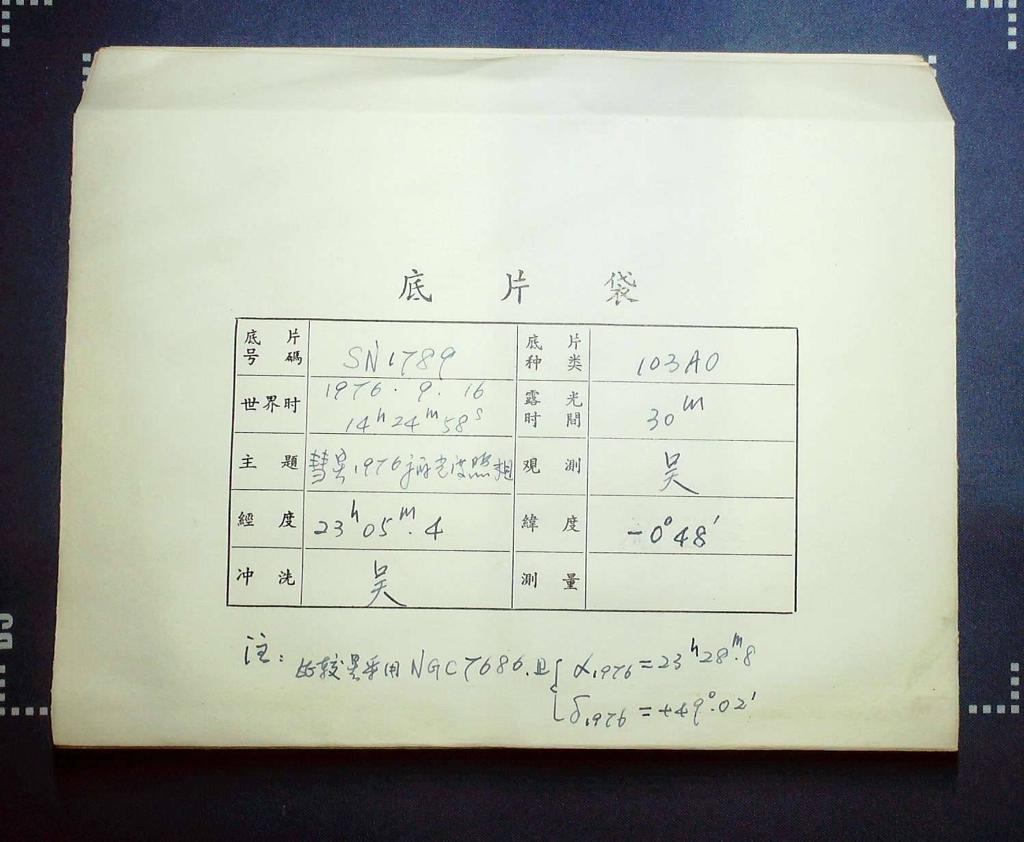 底片袋
底片号碼 SN1789 底片种类 103AO
世界时 1976.9.16 露光时間 30ᵐ
14ʰ24ᵐ58ˢ
主題 彗星1976 照相 观測 吴
經度 23ʰ05ᵐ.4 緯度 -0°48′
冲洗 吴 測量
注：比较星采用NGC7686.且{α₁₉₇₆=23ʰ28ᵐ.8
δ₁₉₇₆=+49°.02′